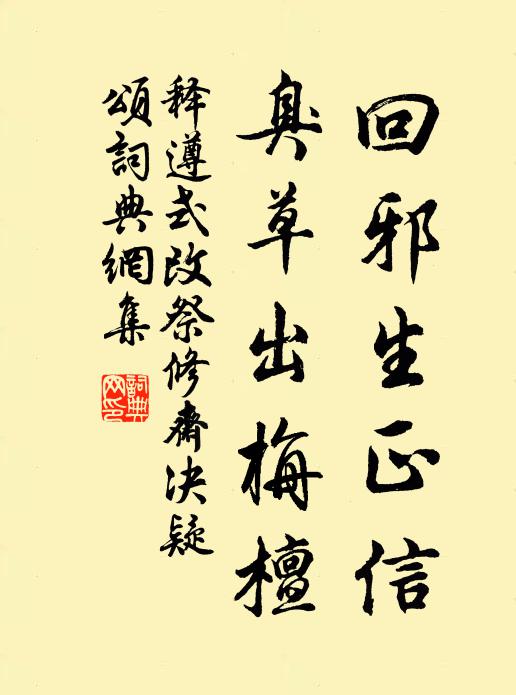 回邪生正信
臭草出梅檀
释遵式改祭修齋决疑
頌詞典網集
詞典
网印